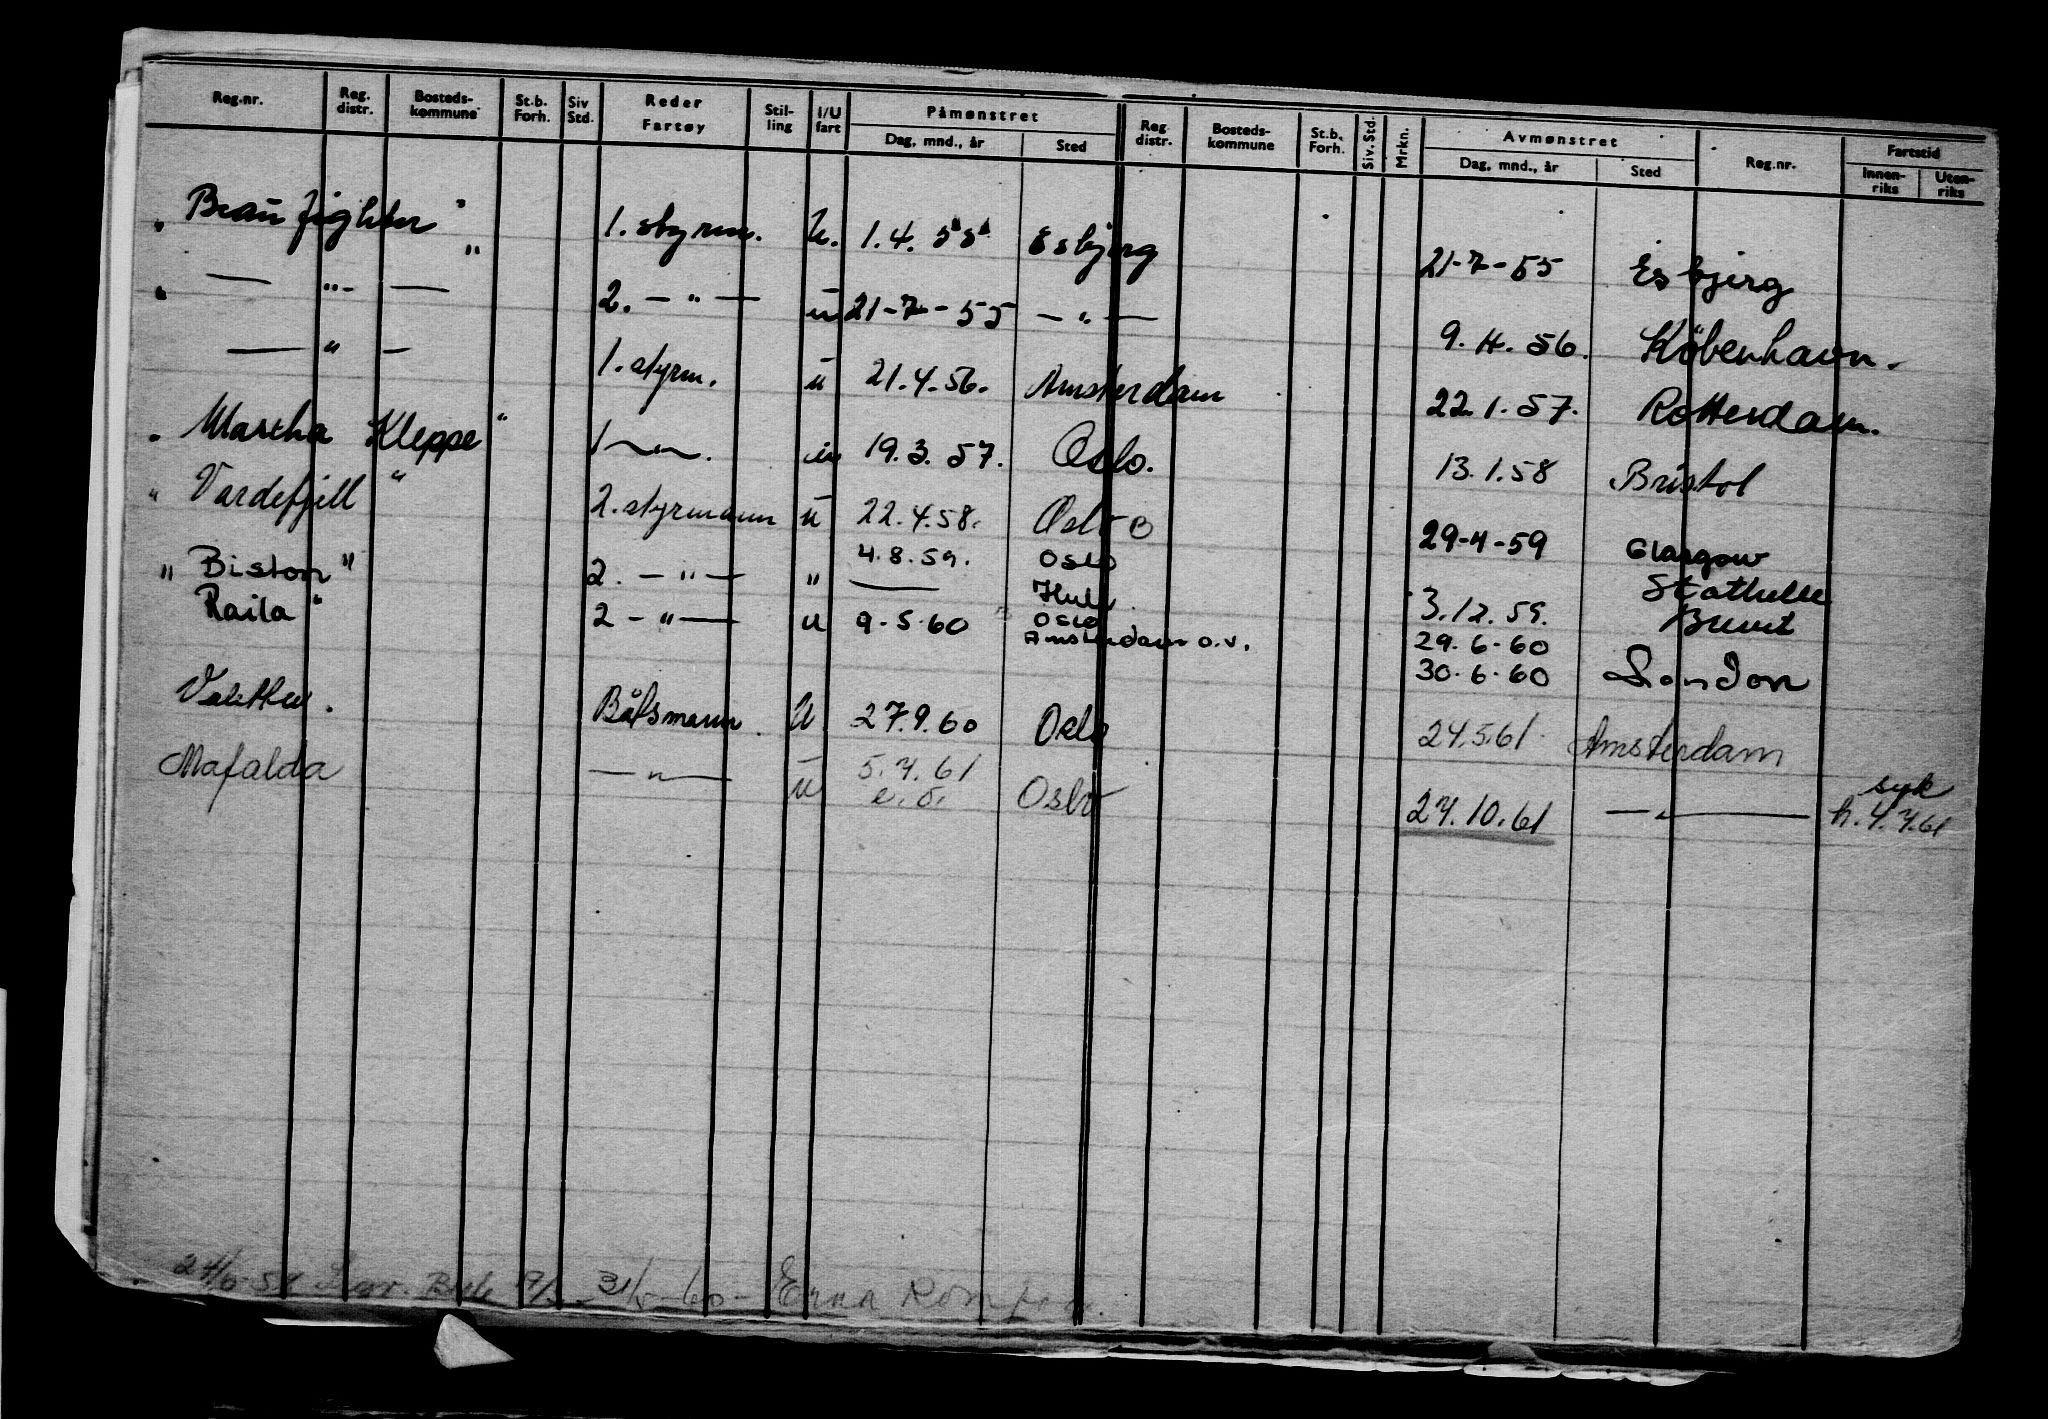 Reg.nr. Reg. distr. Bosteds-kommune St.b. Forh. Siv Std. Reder Fartøy Stil-ling I/U fart Påmønstret Dag, mnd., år Sted Reg distr. Bosteds-kommune St.b. Forh. Siv. Std. Mrkn. Avmønstret Dag, mnd., år Sted Reg.nr. Fartstid Innen-riks Uten-riks
" Beaufighter " 1. styrm. U. 1.4.55 Esbjerg 21-7-55 Esbjerg
" — " — 2. — " — u 21-7-55 — " — 9.4.56. København.
— " — 1. styrm. u 21.4.56. Amsterdam 22.1.57. Rotterdam.
" Martha Kleppe " 1 — " —. u 19.3.57. Oslo. 13.1.58 Bristol
" Vardefjell " 2. styrmann u 22.4.58. Oslo 29-4-59 Glasgow
" Biston " 2. — " — " 4.8.59. Oslo 3.12.59. Stathelle
Raila " 2 — " — u 9-5-60 Oslo Amsterdam o.v. 29.6-60
30.6-60 London
Båtsmann. U 27.9.60 Oslo 24.5.61 Amsterdam
Mafalda — " — u 5.7.61 Oslo 27.10.61 — " — syk
h. 4.7.61